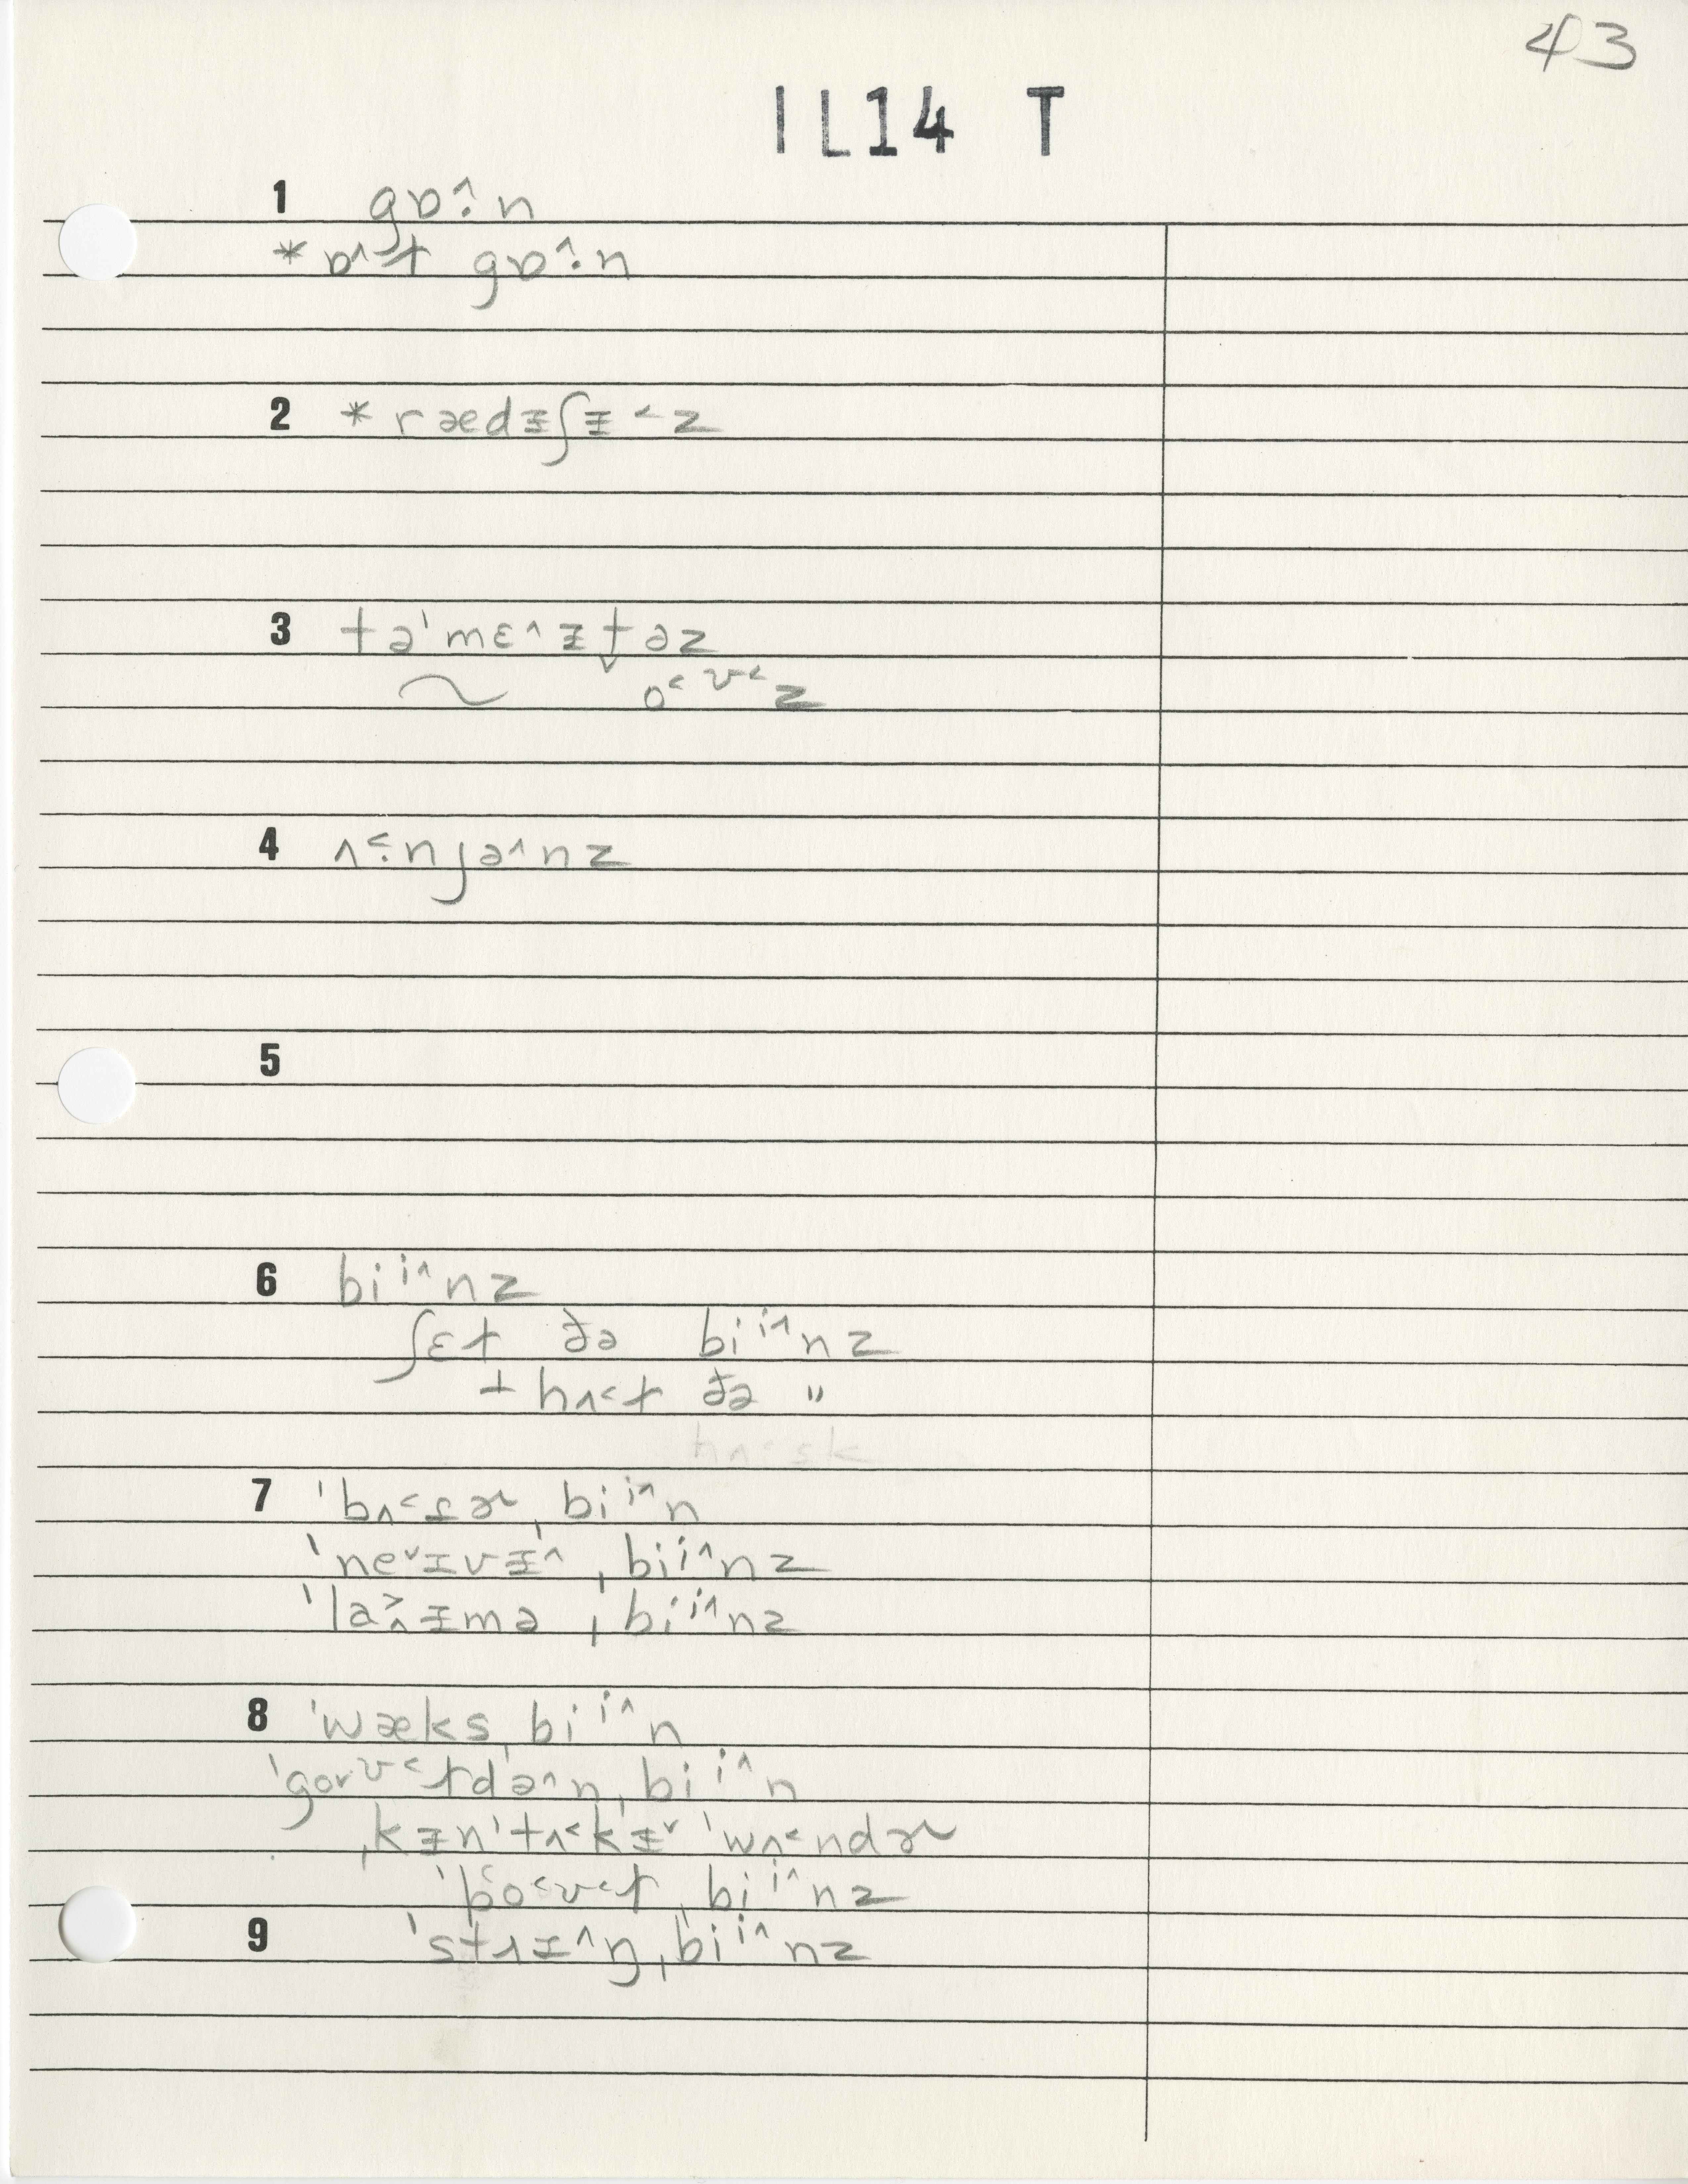 43
IL14 T
1 gɒ˄:n
*ɒ˄t gɒ˄:n
2 *rædɪ̵ʃɪ̵˂z
3 tə'mɛ˄ɪ̵t̬əz
~ o˂ʊ˂z
4 ʌ˂:njə˄nz
5
6 biⁱ˄nz
ʃɛt ðə biⁱ˄nz
+ hʌ˂t ðə "
hʌ˂sk
7 'bʌ˂ɾɚˌbiⁱ˄n
'ne˅ɪvɪ̵˄ ˌbiⁱ˄nz
'la˃˄ɪ̵mə ˌbiⁱ˄nz
8 'wæksˌbiⁱ˄n
'go˅ʊ˂tdə˄nˌbiⁱ˄n
ˌkɪ̵n'tʌ˂kɪ̵˅ 'wʌ˂ndɚ
'po˂ʊ˂tˌbiⁱ˄nz
9 'stɹɪ˄ŋˌbiⁱ˄nz